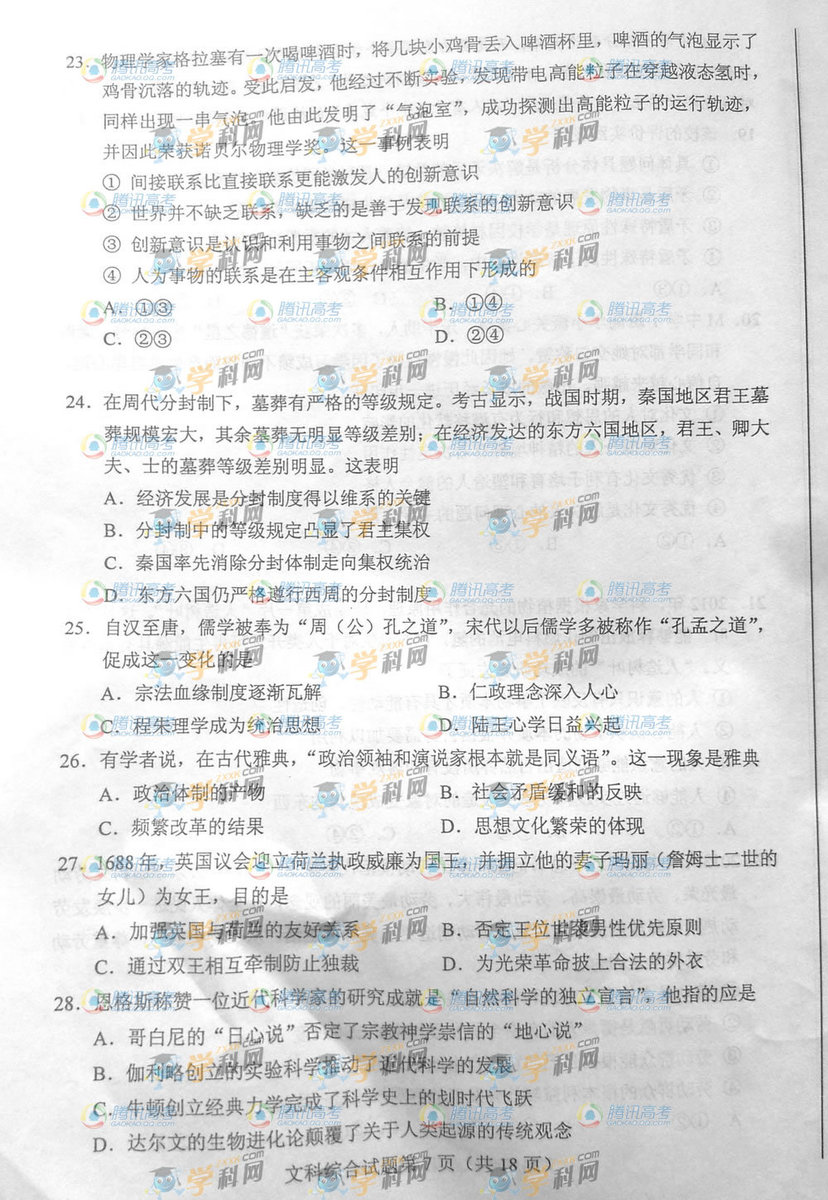 23. 物理学家格拉塞有一次喝啤酒时，将几块小鸡骨丢入啤酒杯里，啤酒的气泡显示了
鸡骨沉落的轨迹。受此启发，他经过不断实验，发现带电高能粒子在穿越液态氢时，
同样出现一串气泡。他由此发明了“气泡室”，成功探测出高能粒子的运行轨迹，
并因此荣获诺贝尔物理学奖。这一事例表明
① 间接联系比直接联系更能激发人的创新意识
② 世界并不缺乏联系，缺乏的是善于发现联系的创新意识
③ 创新意识是认识和利用事物之间联系的前提
④ 人为事物的联系是在主客观条件相互作用下形成的
A．①③ B．①④
C．②③ D．②④
24．在周代分封制下，墓葬有严格的等级规定。考古显示，战国时期，秦国地区君王墓
葬规模宏大，其余墓葬无明显等级差别；在经济发达的东方六国地区，君王、卿大
夫、士的墓葬等级差别明显。这表明
A．经济发展是分封制度得以维系的关键
B．分封制中的等级规定凸显了君主集权
C．秦国率先消除分封体制走向集权统治
D．东方六国仍严格遵行西周的分封制度
25．自汉至唐，儒学被奉为“周（公）孔之道”，宋代以后儒学多被称作“孔孟之道”，
促成这一变化的是
A．宗法血缘制度逐渐瓦解 B．仁政理念深入人心
C．程朱理学成为统治思想 D．陆王心学日益兴起
26．有学者说，在古代雅典，“政治领袖和演说家根本就是同义语”。这一现象是雅典
A．政治体制的产物 B．社会矛盾缓和的反映
C．频繁改革的结果 D．思想文化繁荣的体现
27．1688 年，英国议会迎立荷兰执政威廉为国王，并拥立他的妻子玛丽（詹姆士二世的
女儿）为女王，目的是
A．加强英国与荷兰的友好关系 B．否定王位世袭男性优先原则
C．通过双王相互牵制防止独裁 D．为光荣革命披上合法的外衣
28．恩格斯称赞一位近代科学家的研究成就是“自然科学的独立宣言”。他指的应是
A．哥白尼的“日心说”否定了宗教神学崇信的“地心说”
B．伽利略创立的实验科学推动了近代科学的发展
C．牛顿创立经典力学完成了科学史上的划时代飞跃
D．达尔文的生物进化论颠覆了关于人类起源的传统观念
文科综合试题第 7 页（共 18 页）